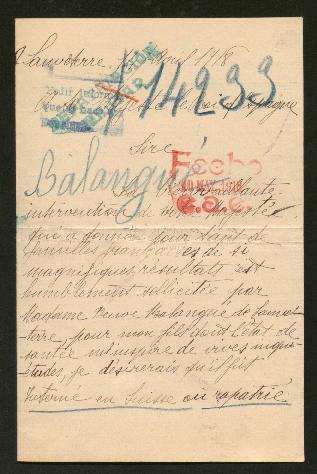 Sauveterre, Avril 1918
14233
A Sa Majesté le Roi d'Espagne
Sire
Fecho
10 MAY. 1918
Balangué
La bienveillante
intervention de Votre Majesté
qui a donné pour sujet de
familles françaises de si
magnifiques résultats est
humblement sollicitée par
Madame Veuve Balangué de Sauve-
terre, pour mon fils dont l'état de
santé m'inspire de vives inquié-
études, je désirerais qu'il fût
Interné en Suisse ou rapatrié